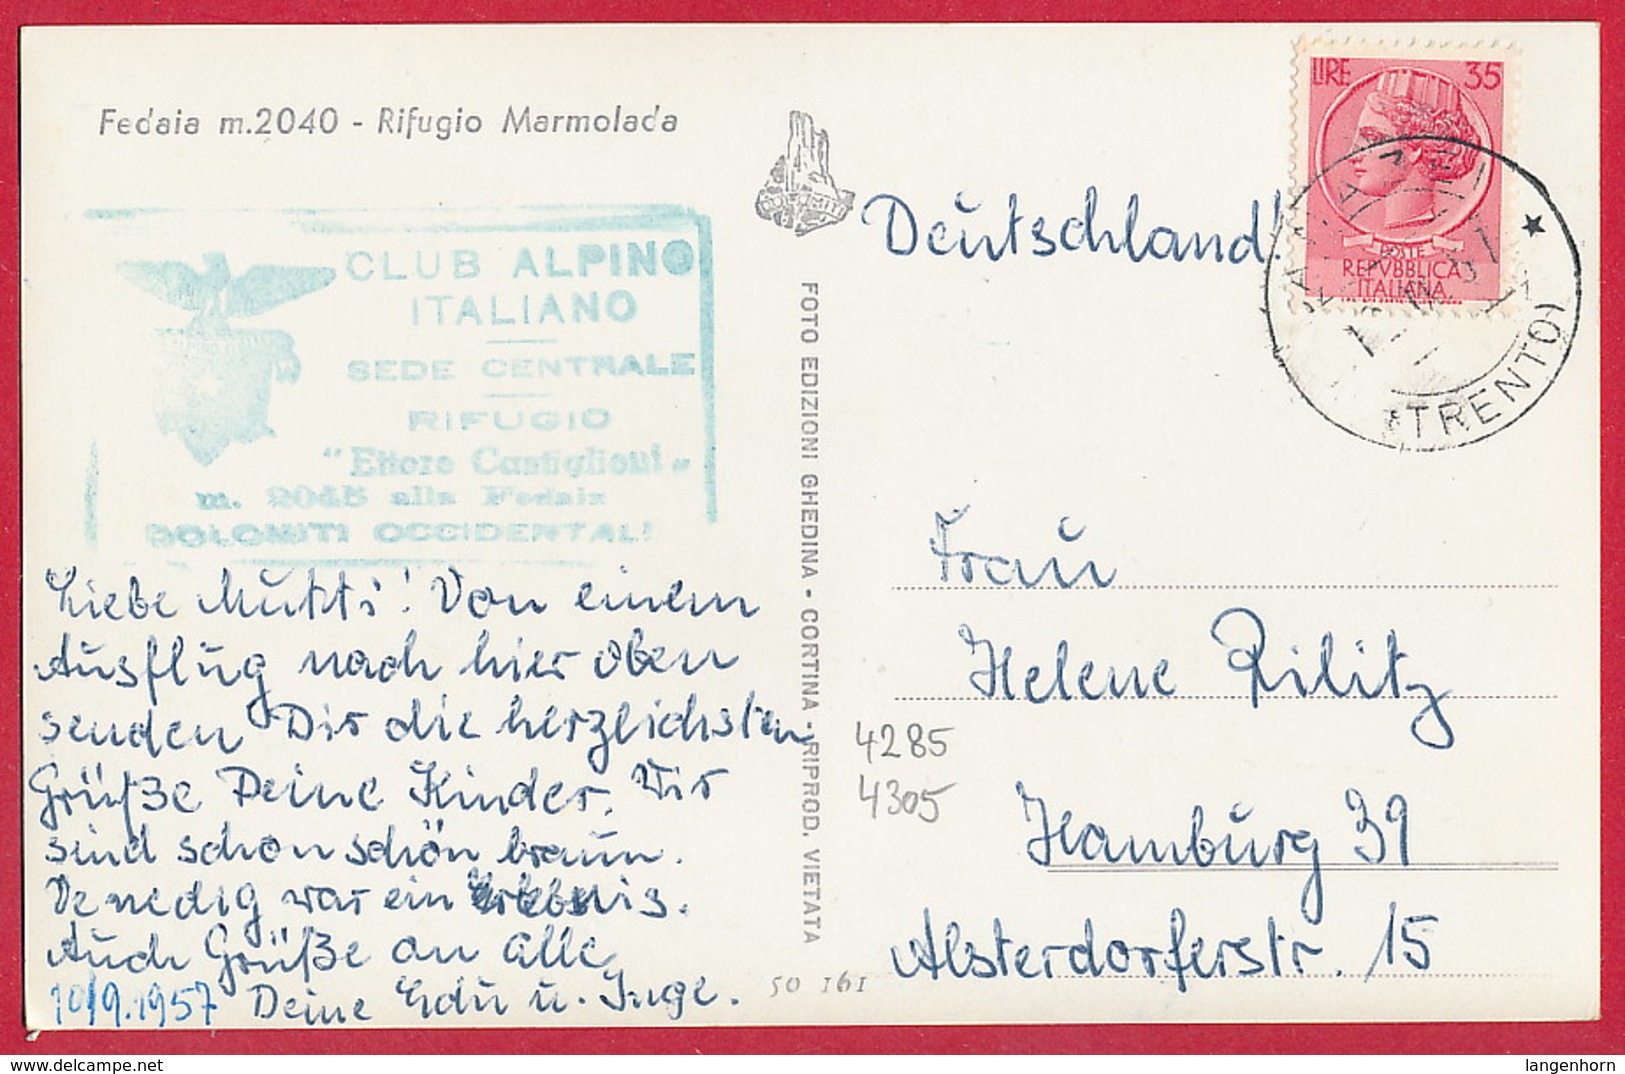 Fedaia m.2040 - Rifugio Marmolada
DOLOMITI
LIRE 35
POSTE
REPVBBLICA
ITALIANA
(TRENTO)
CLUB ALPINO
ITALIANO
SEDE CENTRALE
RIFUGIO
"Ettore Castiglioni"
m. 2045 alla Fedaia
DOLOMITI OCCIDENTALI
Deutschland!
FOTO EDIZIONI GHEDINA - CORTINA - RIPROD. VIETATA
Liebe Mutti! Von einem
Ausflug nach hier oben
senden Dir die herzlichsten
Grüße Deine Kinder. Wir
sind schon schön braun.
Venedig war ein Erlebnis.
Auch Grüße an alle
10/9.1957 Deine Edu u. Inge.
Frau
Helene Rilitz
Hamburg 39
Alsterdorferstr. 15
4285
4305
50 161
langenhorn